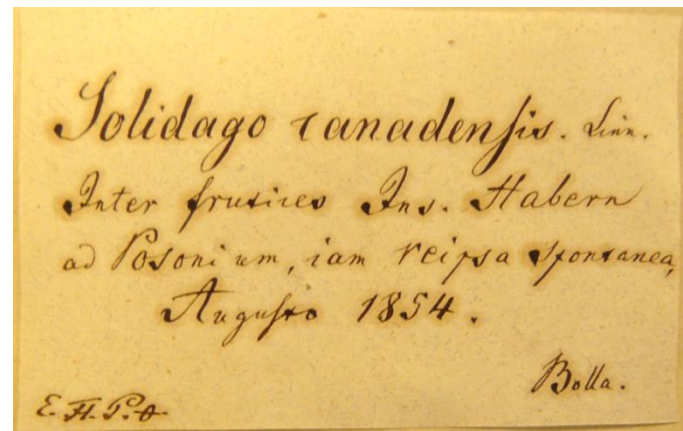 Solidago canadensis. Linn.
Inter frutices Ins. Habern
ad Posonium, iam reipsa spontanea,
Augusto 1854.
Bolla.
E. H. P. A.